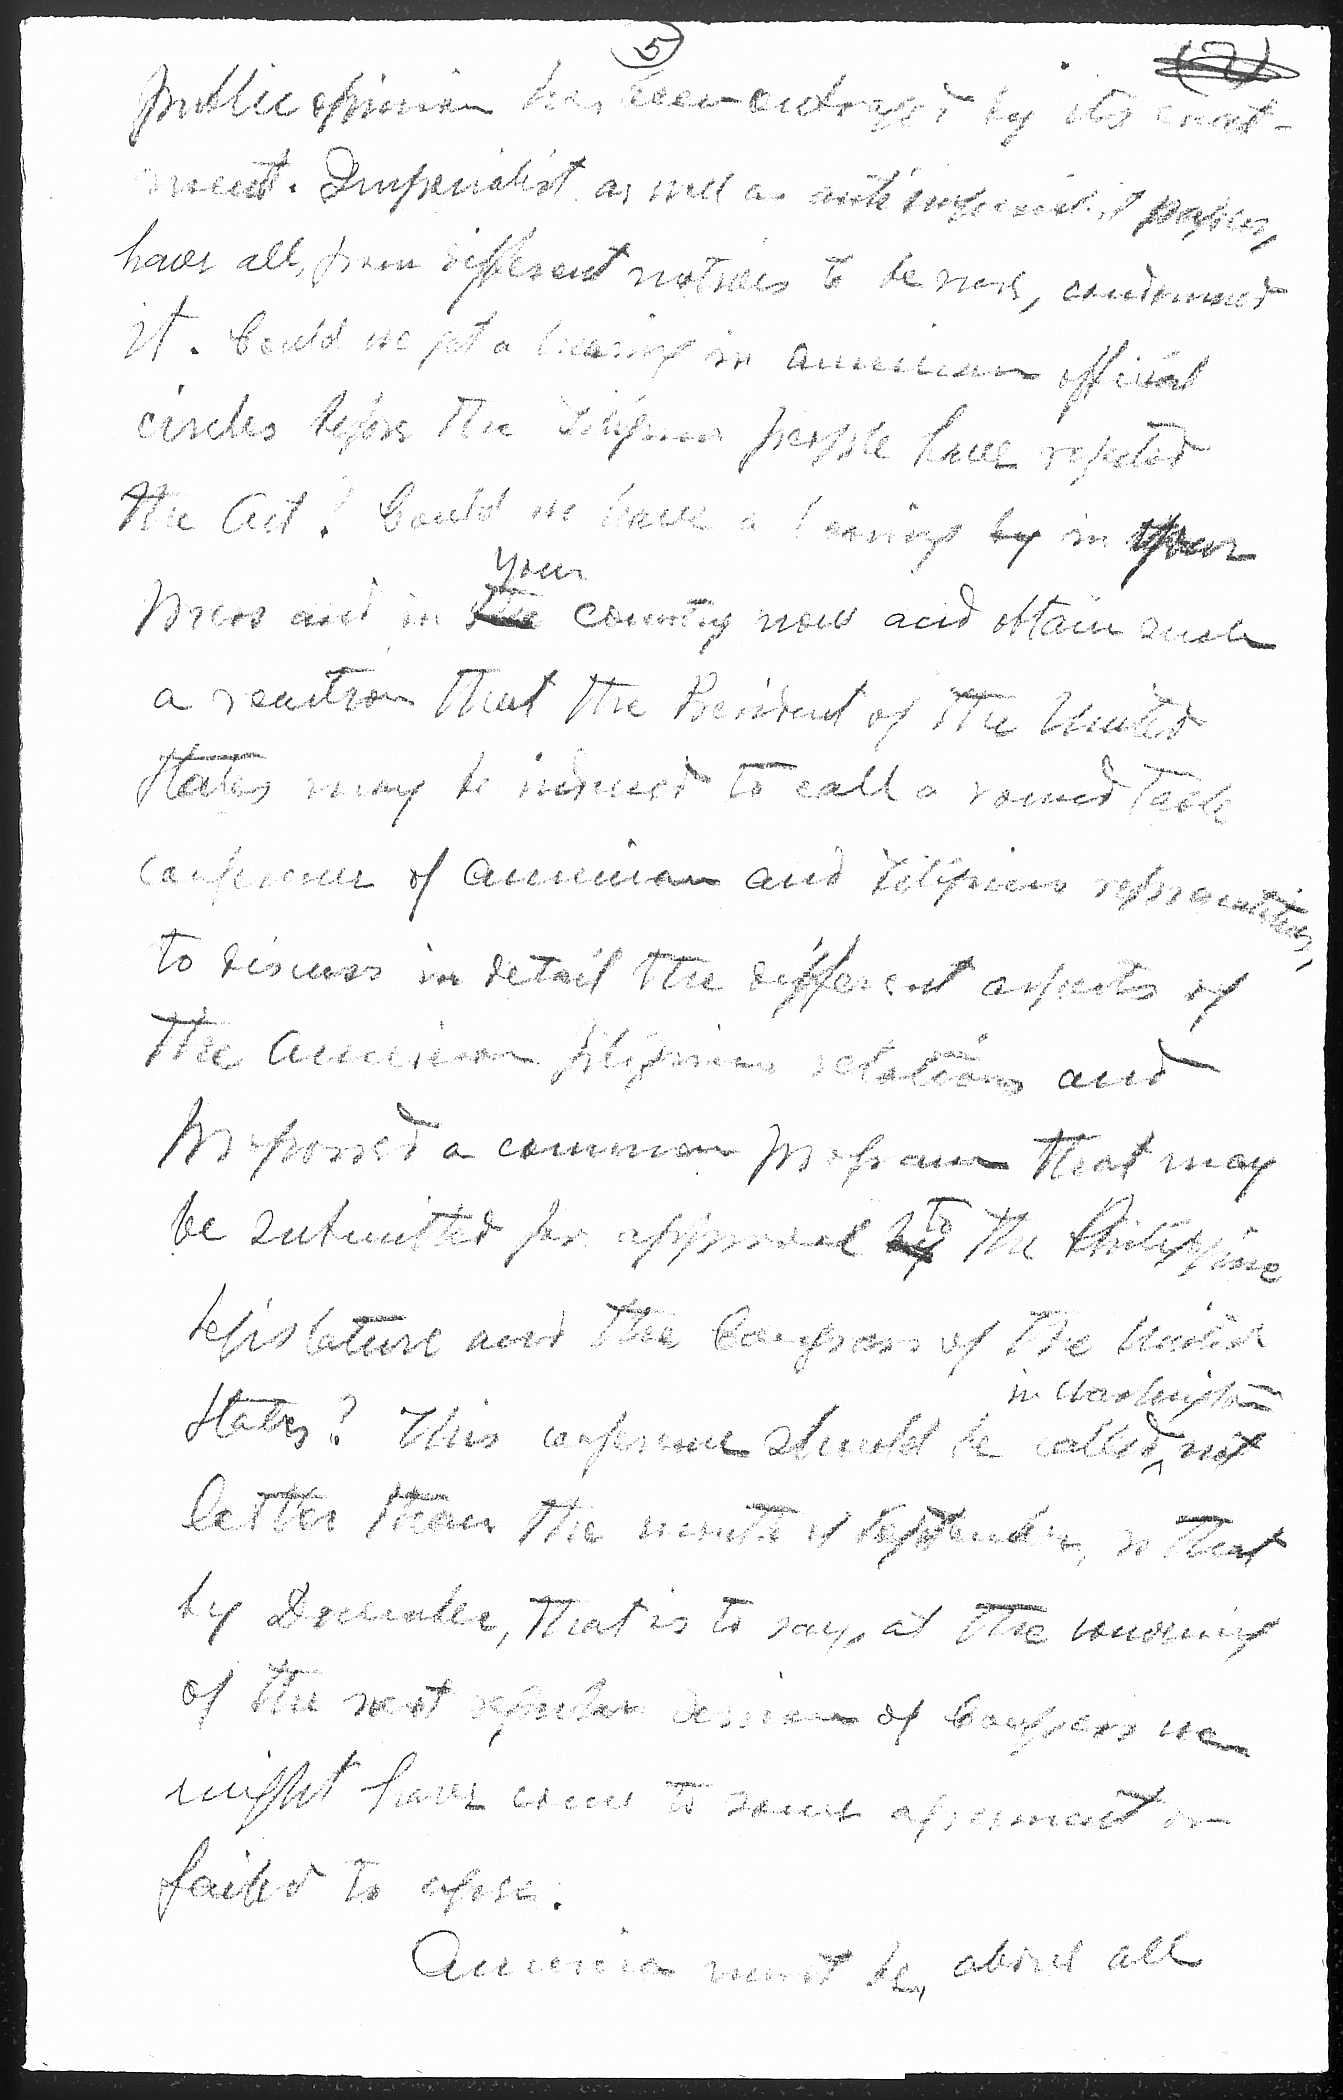 5 (7)
public opinion has been outraged by its enact-
ment. Imperialist as well as anti imperialist papers,
have all, from different motives to be sure, condemned
it. Could we get a hearing in American official
circles before the Filipino people have rejected
the Act? Could we have a hearing by in your
press and in the your country now and obtain such
a reaction that the President of the United
States may be induced to call a round table
conference of American and Filipino representatives,
to discuss in detail the different aspects of
the American filipino relations and
proposed a common program that may
be submitted for approval by to the Philippine
Legislature and the Congress of the United
States? This conference should be called in Washington not
latter than the month of September, so that
by December, that is to say, at the convening
of the next regular session of Congress we
might have come to some agreement or
failed to agree.
America must be, above all